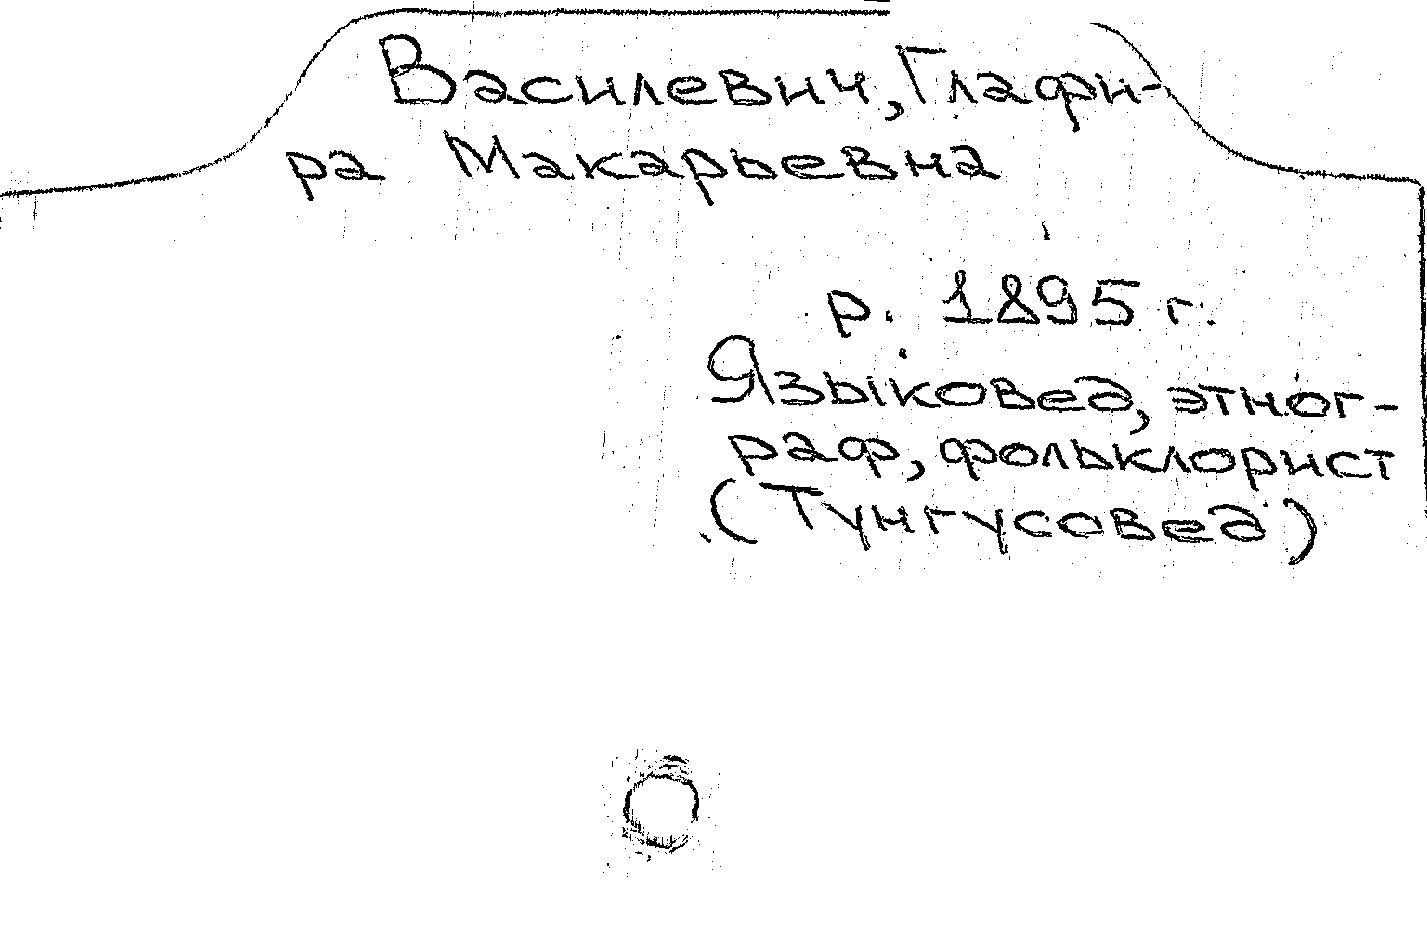 Василевич, Глафи-
ра Макарьевна
р. 1895 г.
Языковед, этног-
раф, фольклорист
(Тунгусовед)